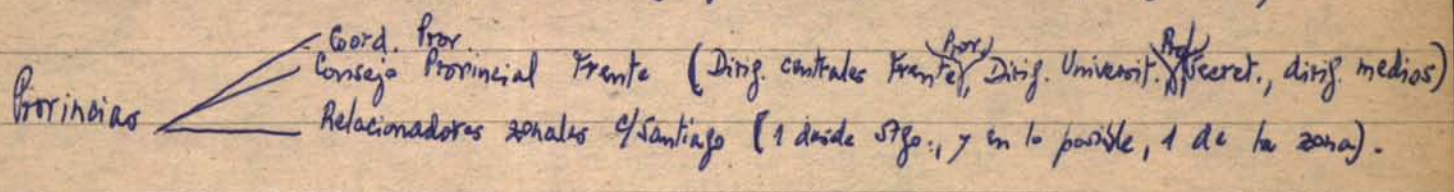 Coord. Prov.
Consejo Provincial Frente (Dirig. centrales Frente Prov., Dirig. Universit. Prov., Secret., dirig. medios)
Provincias
Relacionadores zonales c/Santiago (1 desde Stgo., y en lo posible, 1 de la zona).